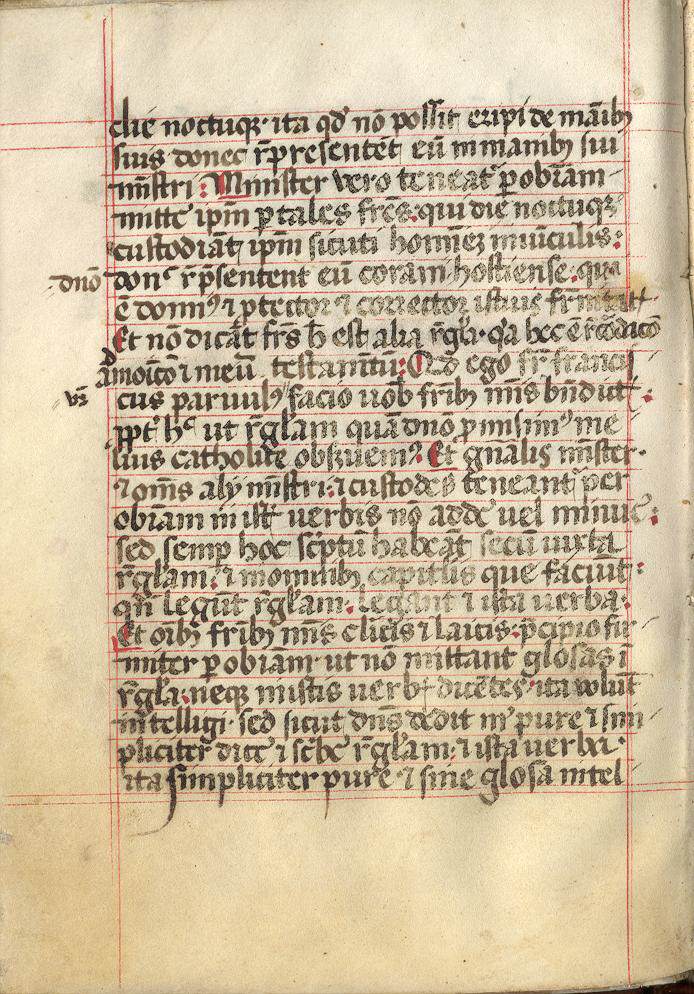 die noctuq3 ita qd' nō possit eripi de manib3
suis donec rp̄resentēt eū in manibus sui
mīstri: Minister vero teneat' p obīam
mitte' ipm̄ p tales frēs. qui die noctuq3
custodiāt ipm̄ sicuti hominē3 in uīculis:
dnō don' rp̄sentent eū coram hostiense. qui
ē domin' ⁊ ptector ⁊ corrector istius frn̄itatis
Et nō dicāt frs̄ h̄ est alia rg̃la. qa hec ē recordatō
ām̄oitō ⁊ meū testamtū: Qd ego fr̄ francis
vr̄ cus paruul' facio uob' frīb3 mīs bn̄dict
ppt' h' ut rg̃lam quā dnō pmisim' me
lius catholice obs̄uem': Et gn̄alis mīster
⁊ om̄s alij mīstri. ⁊ custodes teneant' per
obīam in ist' uerbis nō adde' uel minue':
sed semp hoc sc̄ptū habeāt secū iuxta
rg̃lam: ⁊ in omnib3 capitlis que faciūt:
qn̄ legūt rg̃lam: legant ⁊ ista uerba:
Et oīb3 frīb3 mīs clicis ⁊ laicis. p̄cipio fir
miter p obīam. ut nō mittant glosas ī
rg̃la. neq3 in istis uerb' dicētes. ita uolūt
intelligi. sed sicut dn̄s dedit m' pure ⁊ sim
pliciter dice' ⁊ sc̄be' rg̃lam. ⁊ ista uerba.
ita simpliciter pure ⁊ sine glosa intel